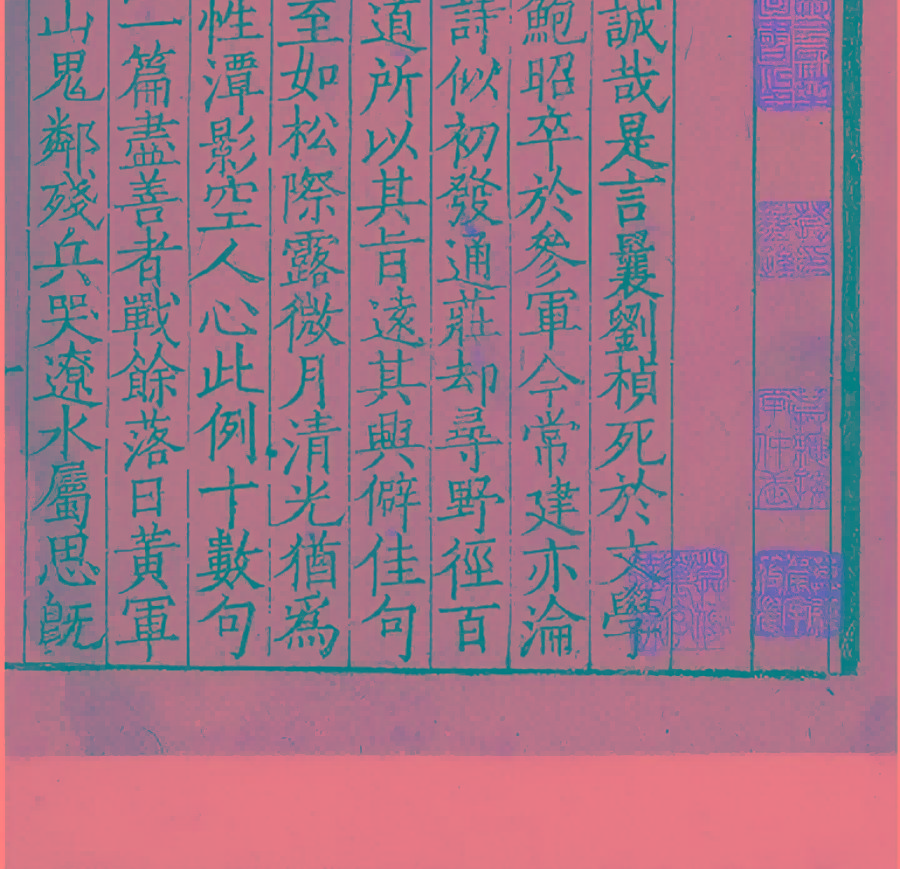 誠哉是言曩劉楨死於文學
鮑昭卒於參軍今常建亦淪
詩似初發通莊却尋野徑百
道所以其旨遠其興僻佳句
至如松際露微月清光猶爲
性潭影空人心此例十數句
一篇盡善者戰餘落日黃軍
山鬼鄰殘兵哭遼水屬思旣